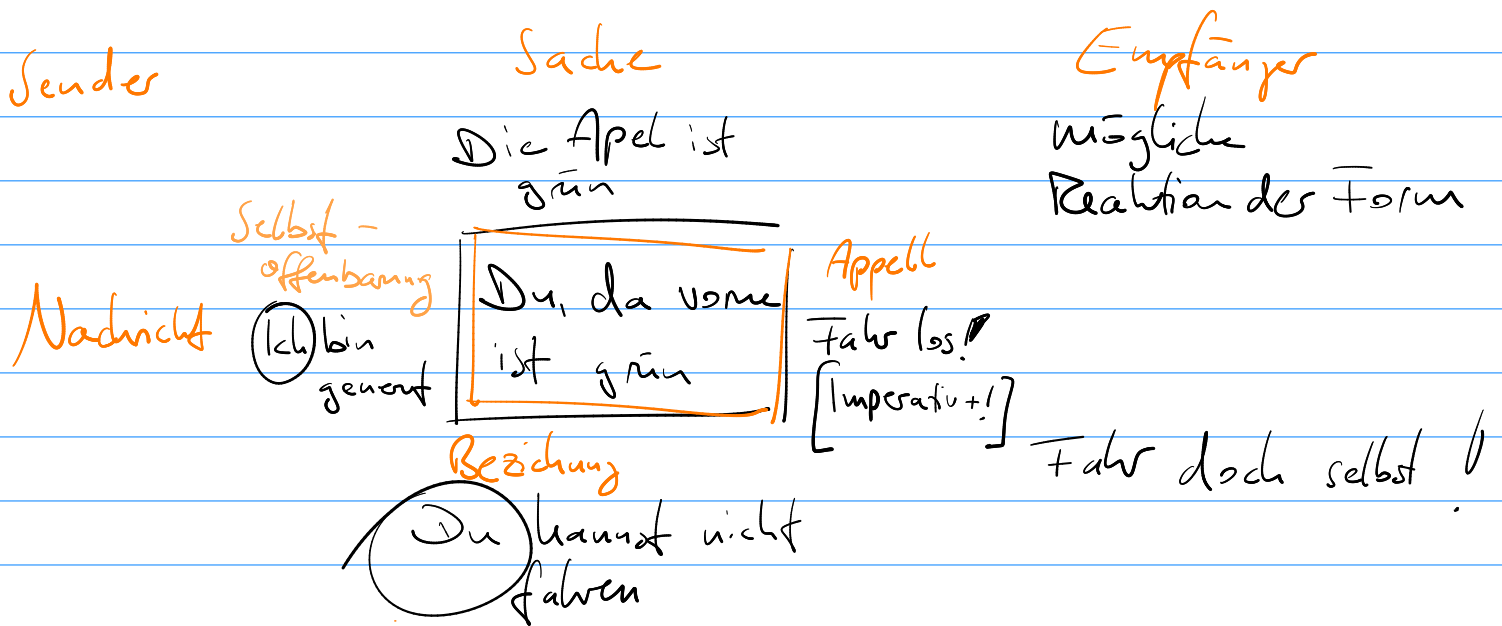 Sender
Sache
Empfänger
Die Apel ist
grün
mögliche
Reaktion der Form
Selbst-
offenbarung
Appell
Nachricht
Ich bin
genervt
Du, da vorne
ist grün
Fahr los!
[Imperativ+!]
Beziehung
Du kannst nicht
fahren
Fahr doch selbst!